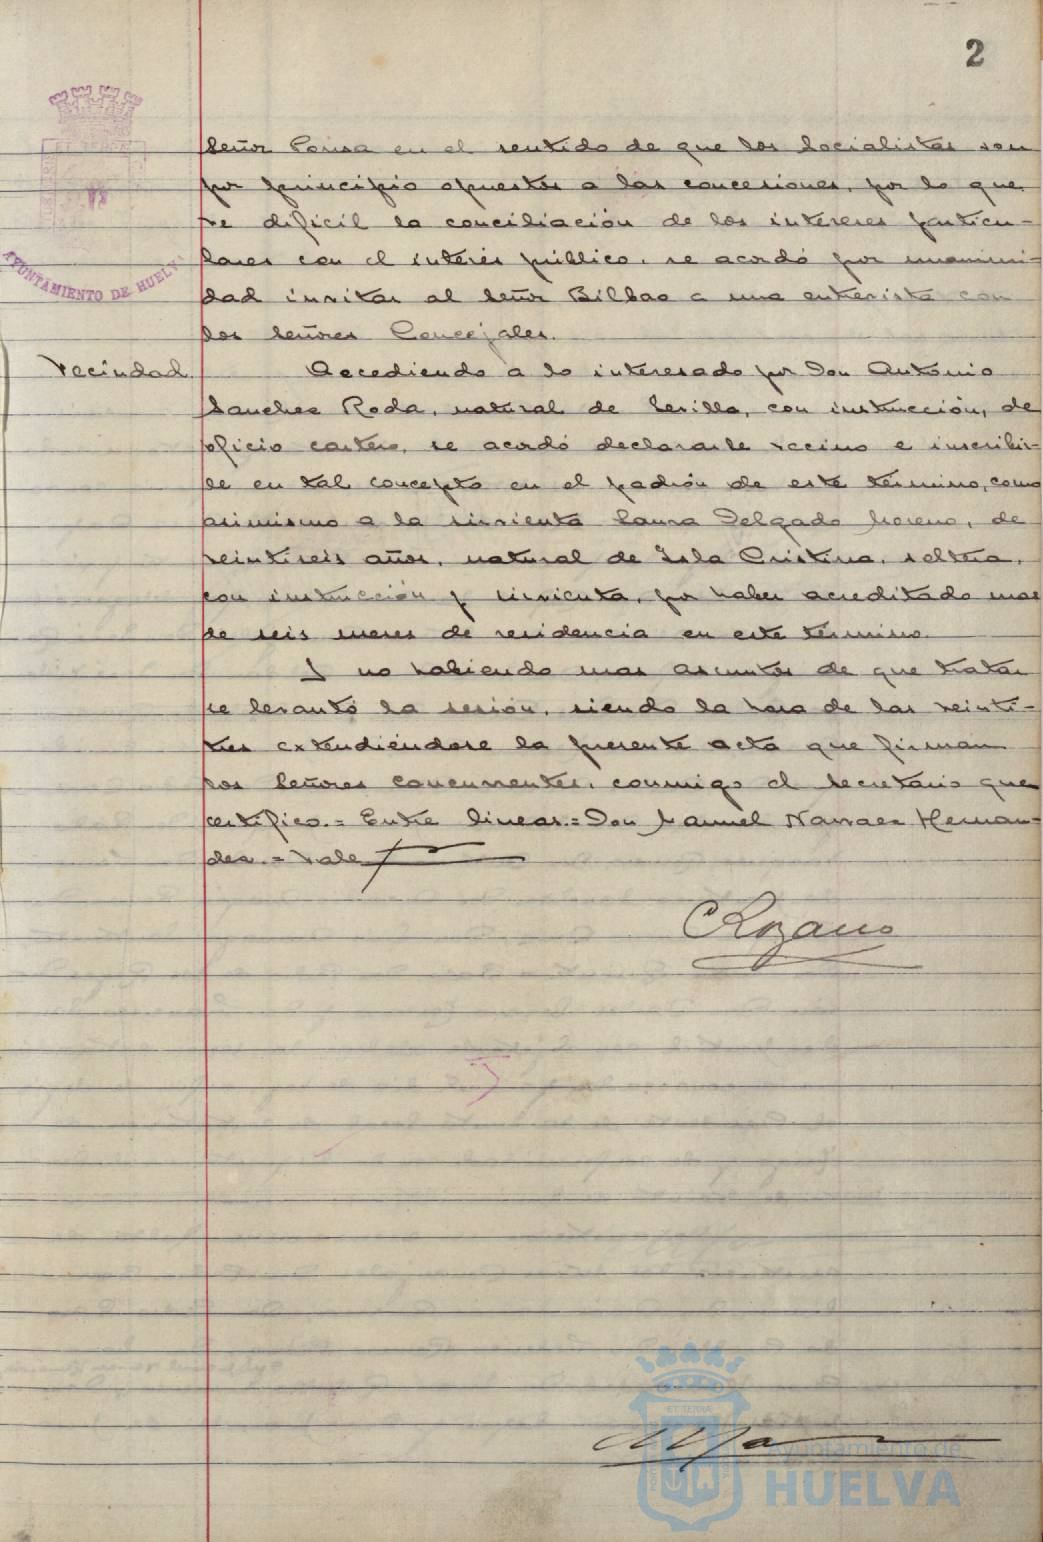 2
AYUNTAMIENTO DE HUELVA
Señor Ponsa en el sentido de que los Socialistas son
por principio opuestos a las concesiones, por lo que
ve dificil la conciliación de los intereses particu-
lares con el interés público, se acordó por unanimi-
dad invitar al Señor Bilbao a una entrevista con
los Señores Concejales.
Vecindad.
Accediendo a lo interesado por Don Antonio
Sanchez Roda, natural de Sevilla, con instrucción, de
oficio cartero, se acordó declararle vecino e inscribir-
le en tal concepto en el padrón de este término, como
asimismo a la sirvienta Laura Delgado Moreno, de
veintiseis años, natural de Isla Cristina, soltera,
con instrucción y sirvienta, por haber acreditado mas
de seis meses de residencia en este término.
Y no habiendo mas asuntos de que tratar
se levantó la sesión, siendo la hora de las veinti-
tres extendiéndose la presente acta que firman
los Señores concurrentes, conmigo el Secretario que
certifico.= Entre lineas.= Don Manuel Narvaez Hernan-
dez.= Vale
Ayuntamiento de
HUELVA